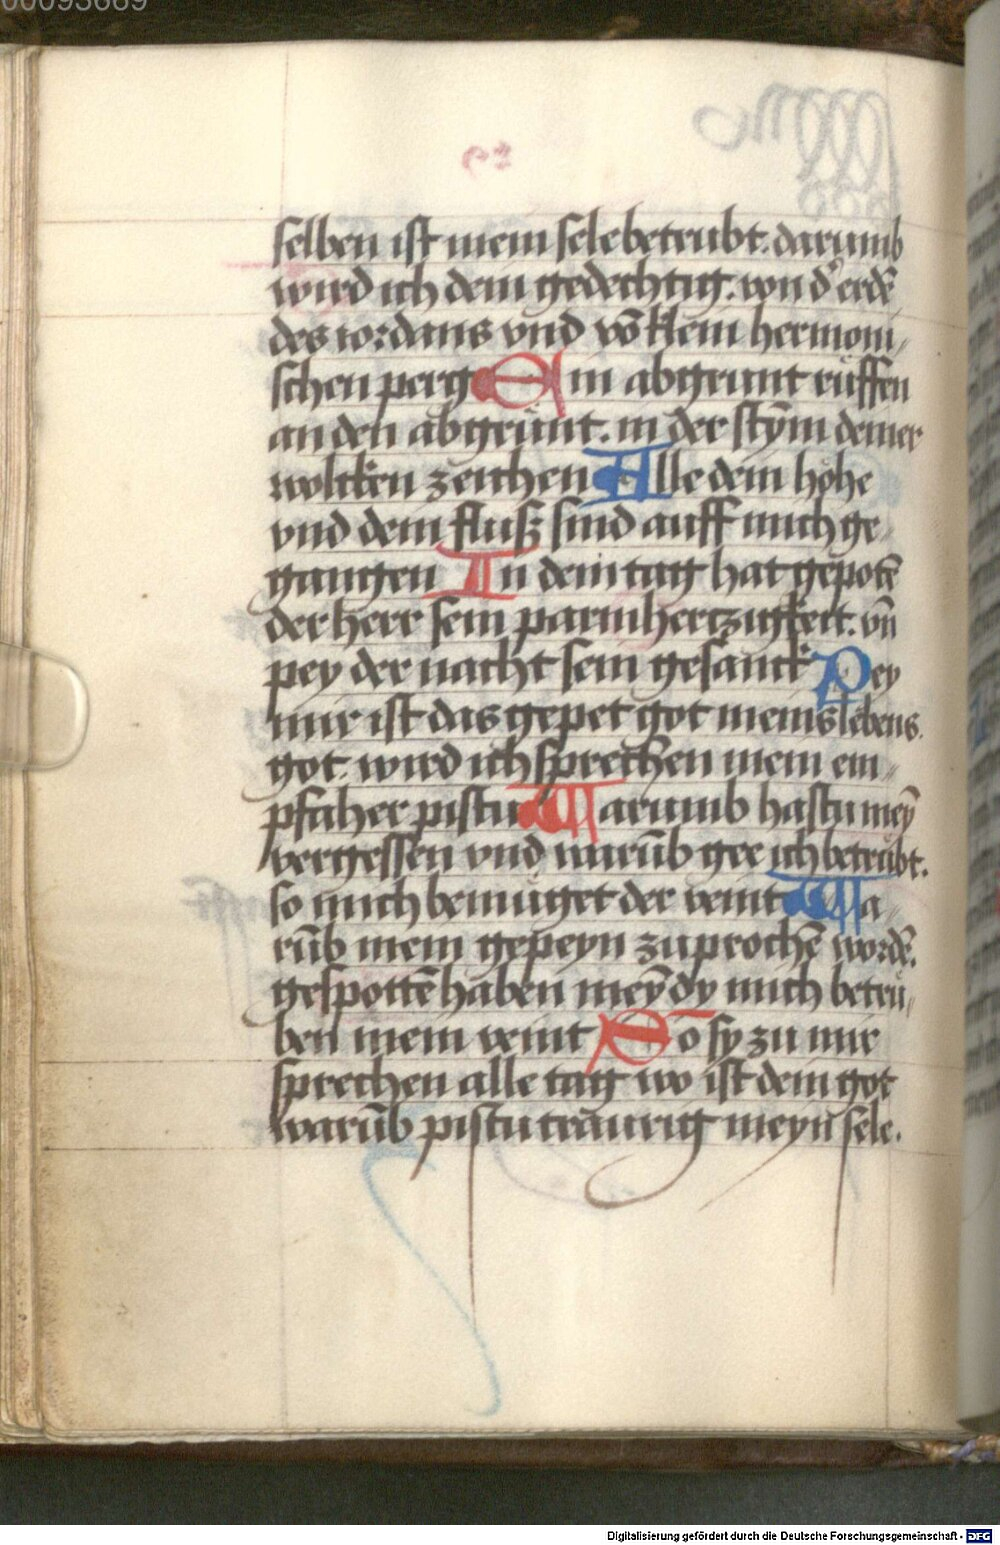 selben ist mein sele betrubt. darumb
wird ich dein gedechtig. von d' erdē
des iordans vnd vō klein hermoni
schen perg Ein abgrunt rüffen
an den abgrünt. in der stÿm deiner
wolcken zeichen Alle dein höhe
vnd dein fluß sind auff mich ge
gangen In dem tag hat gepotē
der herr sein parmhertzigkeit. vn̄
pey der nacht sein gesanck Pey
mir ist das gepet got meins lebens.
got. wird ich sprechen mein em
pfaher pistu Warumb hastu meÿ
vergessen vnd warūb gee ich betrübt.
so mich bemüget der veint Wa
rūb mein gepeyn zuprochē wordē.
gespottē haben meÿ dy mich betrü
ben mein veint So sy zu mir
sprechen alle tag wo ist dein got
warūb pistu traurig meyn sele.
Digitalisierung gefördert durch die Deutsche Forschungsgemeinschaft - DFG